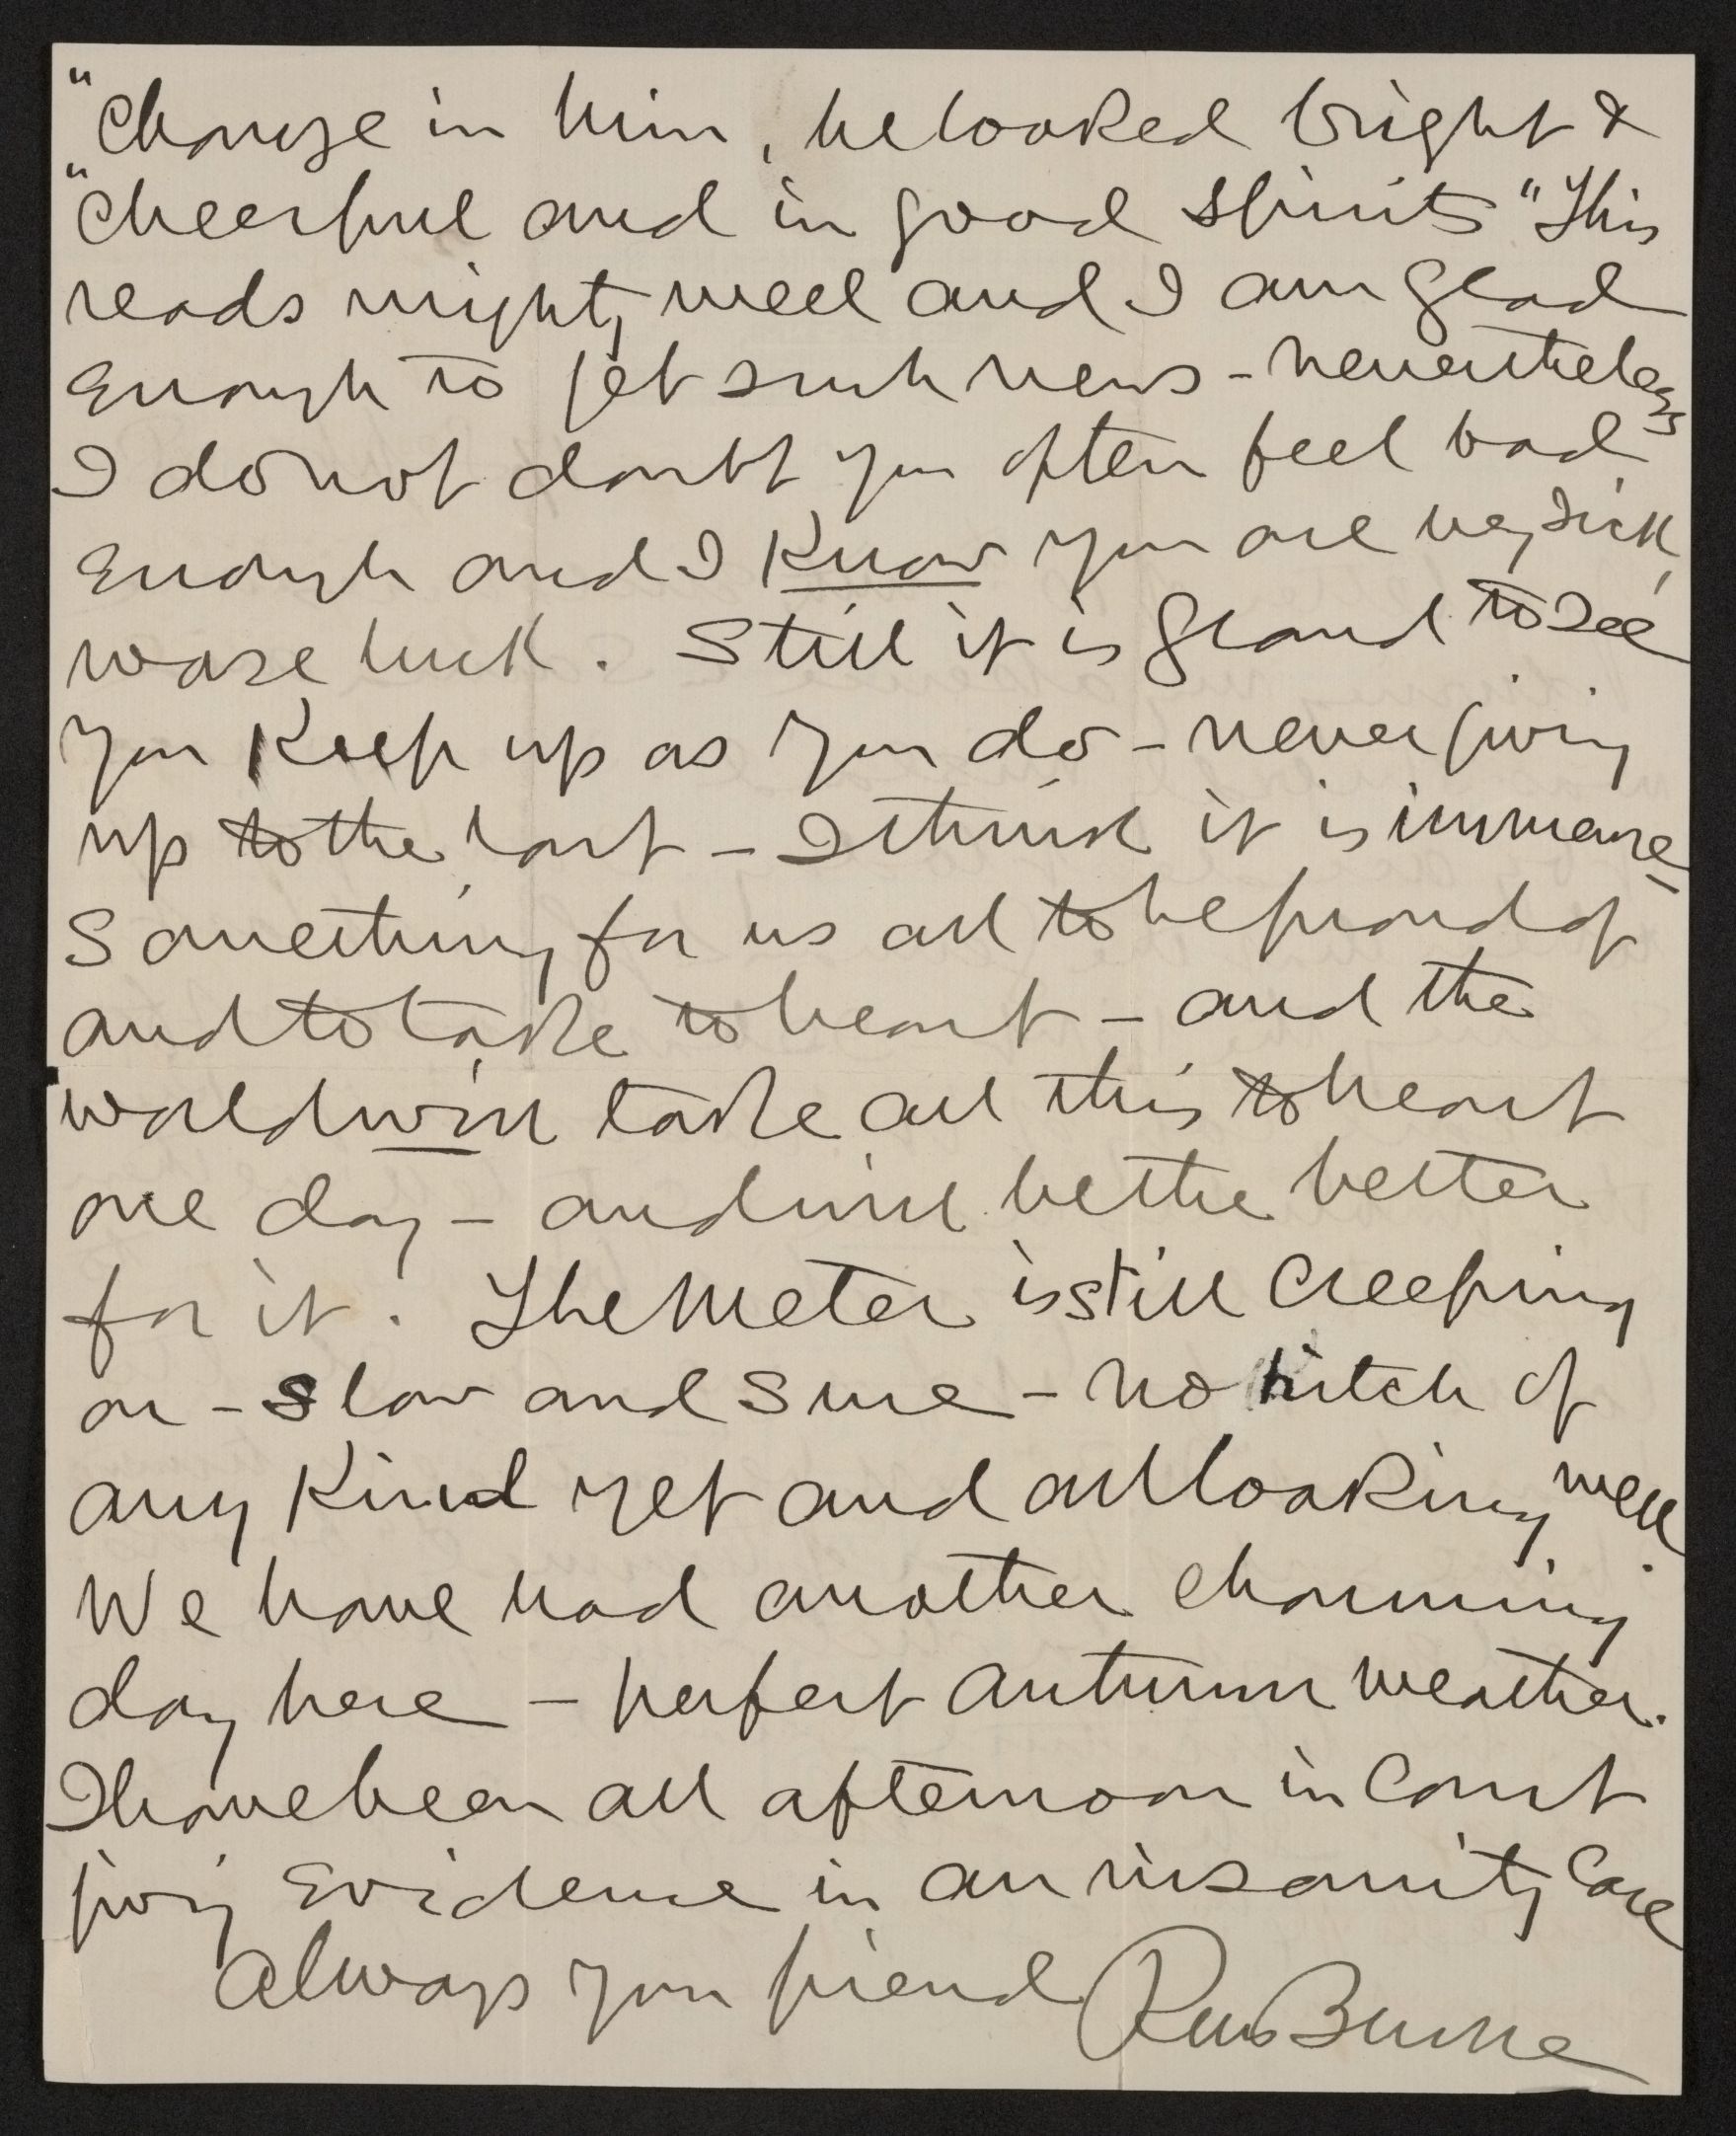 "change in him, he looked bright &
"cheerful and in good spirits" This
reads mighty well and I am glad
enough to get such news - nevertheless
I do not doubt you often feel bad
enough and I know you are very sick,
worse luck. Still it is grand to see
you keep up as you do - never giving
up to the last - I think it is immense -
something for us all to be proud of
and to take to heart - and the
world will take all this to heart
one day - and will be the better
for it. The Meter is still creeping
on - slow and sure - no hitch of
any kind yet and all looking well.
We have had another charming
day here - perfect autumn weather.
I have been all afternoon in Court
giving evidence in an insanity case
Always your friend RM Bucke